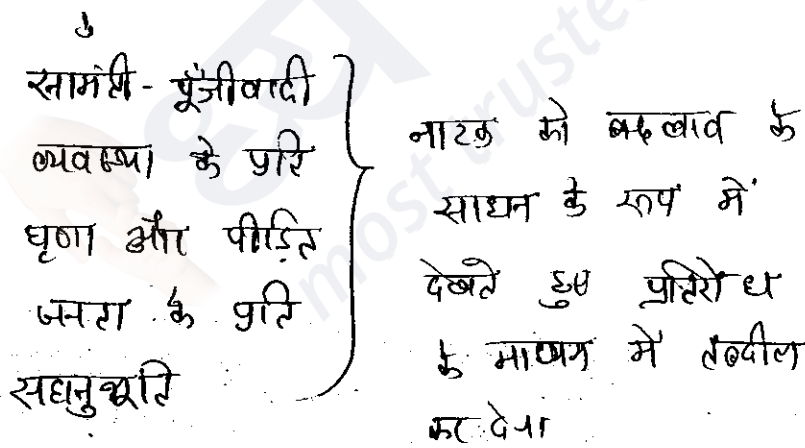 सामंती - पूँजीवादी
व्यवस्था के प्रति
घृणा और पीड़ित
जनता के प्रति
सहानुभूति
नाटक को बदलाव के
साधन के रूप में
देखते हुए प्रतिरोध
के माध्यम में तब्दील
कर देना
most truste